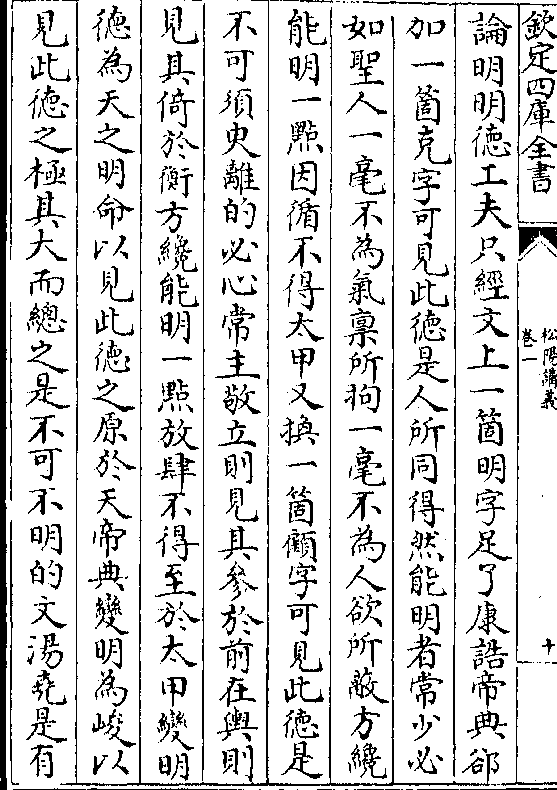 欽定四庫全書
松陽講義
卷一
十
論明明德工夫只經文上一箇明字足了康誥帝典郤
加一箇克字可見此德是人所同得然能明者常少必
如聖人一毫不為氣禀所拘一毫不為人欲所敝方纔
能明一點因循不得太甲又換一箇顧字可見此德是
不可須臾離的必心常主敬立則見其參於前在輿則
見其倚於衡方纔能明一點放肆不得至於太甲變明
德為天之明命以見此德之原於天帝典變明為峻以
見此德之極其大而總之是不可不明的文湯堯是有